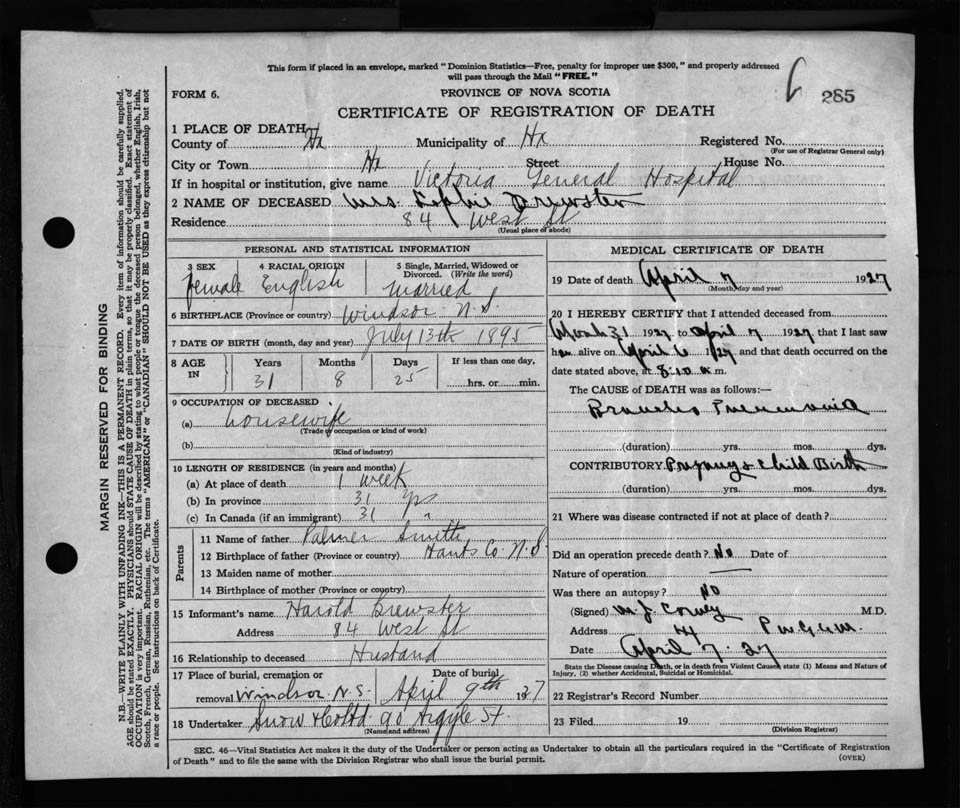 This form if placed in an envelope, marked "Dominion Statistics—Free, penalty for improper use $300," and properly addressed
will pass through the Mail "FREE."
285
FORM 6.
PROVINCE OF NOVA SCOTIA
CERTIFICATE OF REGISTRATION OF DEATH
1 PLACE OF DEATH
County of Hx Municipality of Hx Registered No.
(For use of Registrar General only)
City or Town Hx Street House No.
If in hospital or institution, give name Victoria General Hospital
2 NAME OF DECEASED Mrs Sophie Brewster
Residence 84 West St
(Usual place of abode)
PERSONAL AND STATISTICAL INFORMATION
3 SEX 4 RACIAL ORIGIN 5 Single, Married, Widowed or
Divorced. (Write the word)
female English Married
6 BIRTHPLACE (Province or country) Windsor N.S.
7 DATE OF BIRTH (month, day and year) July 13th 1895
8 AGE IN Years Months Days If less than one day,
31 8 25 hrs. or min.
9 OCCUPATION OF DECEASED
(a) housewife
(Trade, occupation or kind of work)
(b)
(Kind of industry)
10 LENGTH OF RESIDENCE (in years and months)
(a) At place of death 1 week
(b) In province 31 yrs
(c) In Canada (if an immigrant) 31 "
Parents
11 Name of father Palmer Smith
12 Birthplace of father (Province or country) Hants Co. N.S
13 Maiden name of mother
14 Birthplace of mother (Province or country)
15 Informant's name Harold Brewster
Address 84 West St
16 Relationship to deceased Husband
17 Place of burial, cremation or Date of burial
removal Windsor N.S. April 9th 1927
18 Undertaker Snow & Co Ltd 90 Argyle St.
(Name and address)
MEDICAL CERTIFICATE OF DEATH
19 Date of death April 7 1927
(Month, day and year)
20 I HEREBY CERTIFY that I attended deceased from
March 31 1927 to April 7 1927 that I last saw
her alive on April 6 1927 and that death occurred on the
date stated above, at 8:10 a.m.
The CAUSE of DEATH was as follows:—
Broncho Pneumonia
(duration) yrs. mos. dys.
CONTRIBUTORY. Pregnancy & Child Birth
(duration) yrs. mos. dys.
21 Where was disease contracted if not at place of death?
Did an operation precede death? No Date of
Nature of operation —
Was there an autopsy? No
(Signed) M.D.
Address
Date April 7. 27
State the Disease causing Death, or in death from Violent Causes, state (1) Means and Nature of
Injury, (2) whether Accidental, Suicidal or Homicidal.
22 Registrar's Record Number
23 Filed 19
(Division Registrar)
SEC. 46—Vital Statistics Act makes it the duty of the Undertaker or person acting as Undertaker to obtain all the particulars required in the "Certificate of Registration
of Death" and to file the same with the Division Registrar who shall issue the burial permit.
(OVER)
MARGIN RESERVED FOR BINDING
N.B.—WRITE PLAINLY WITH UNFADING INK—THIS IS A PERMANENT RECORD. Every item of information should be carefully supplied.
AGE should be stated EXACTLY. PHYSICIANS should STATE CAUSE OF DEATH in plain terms, so that it may be properly classified. Exact statement of
OCCUPATION is very important. RACIAL ORIGIN will be described by stating to what people or tongue the deceased person belonged, whether English, Irish,
Scotch, French, German, Russian, Ruthenian, etc. The terms "AMERICAN" or "CANADIAN" SHOULD NOT BE USED as they express citizenship but not
a race or people. See instructions on back of Certificate.